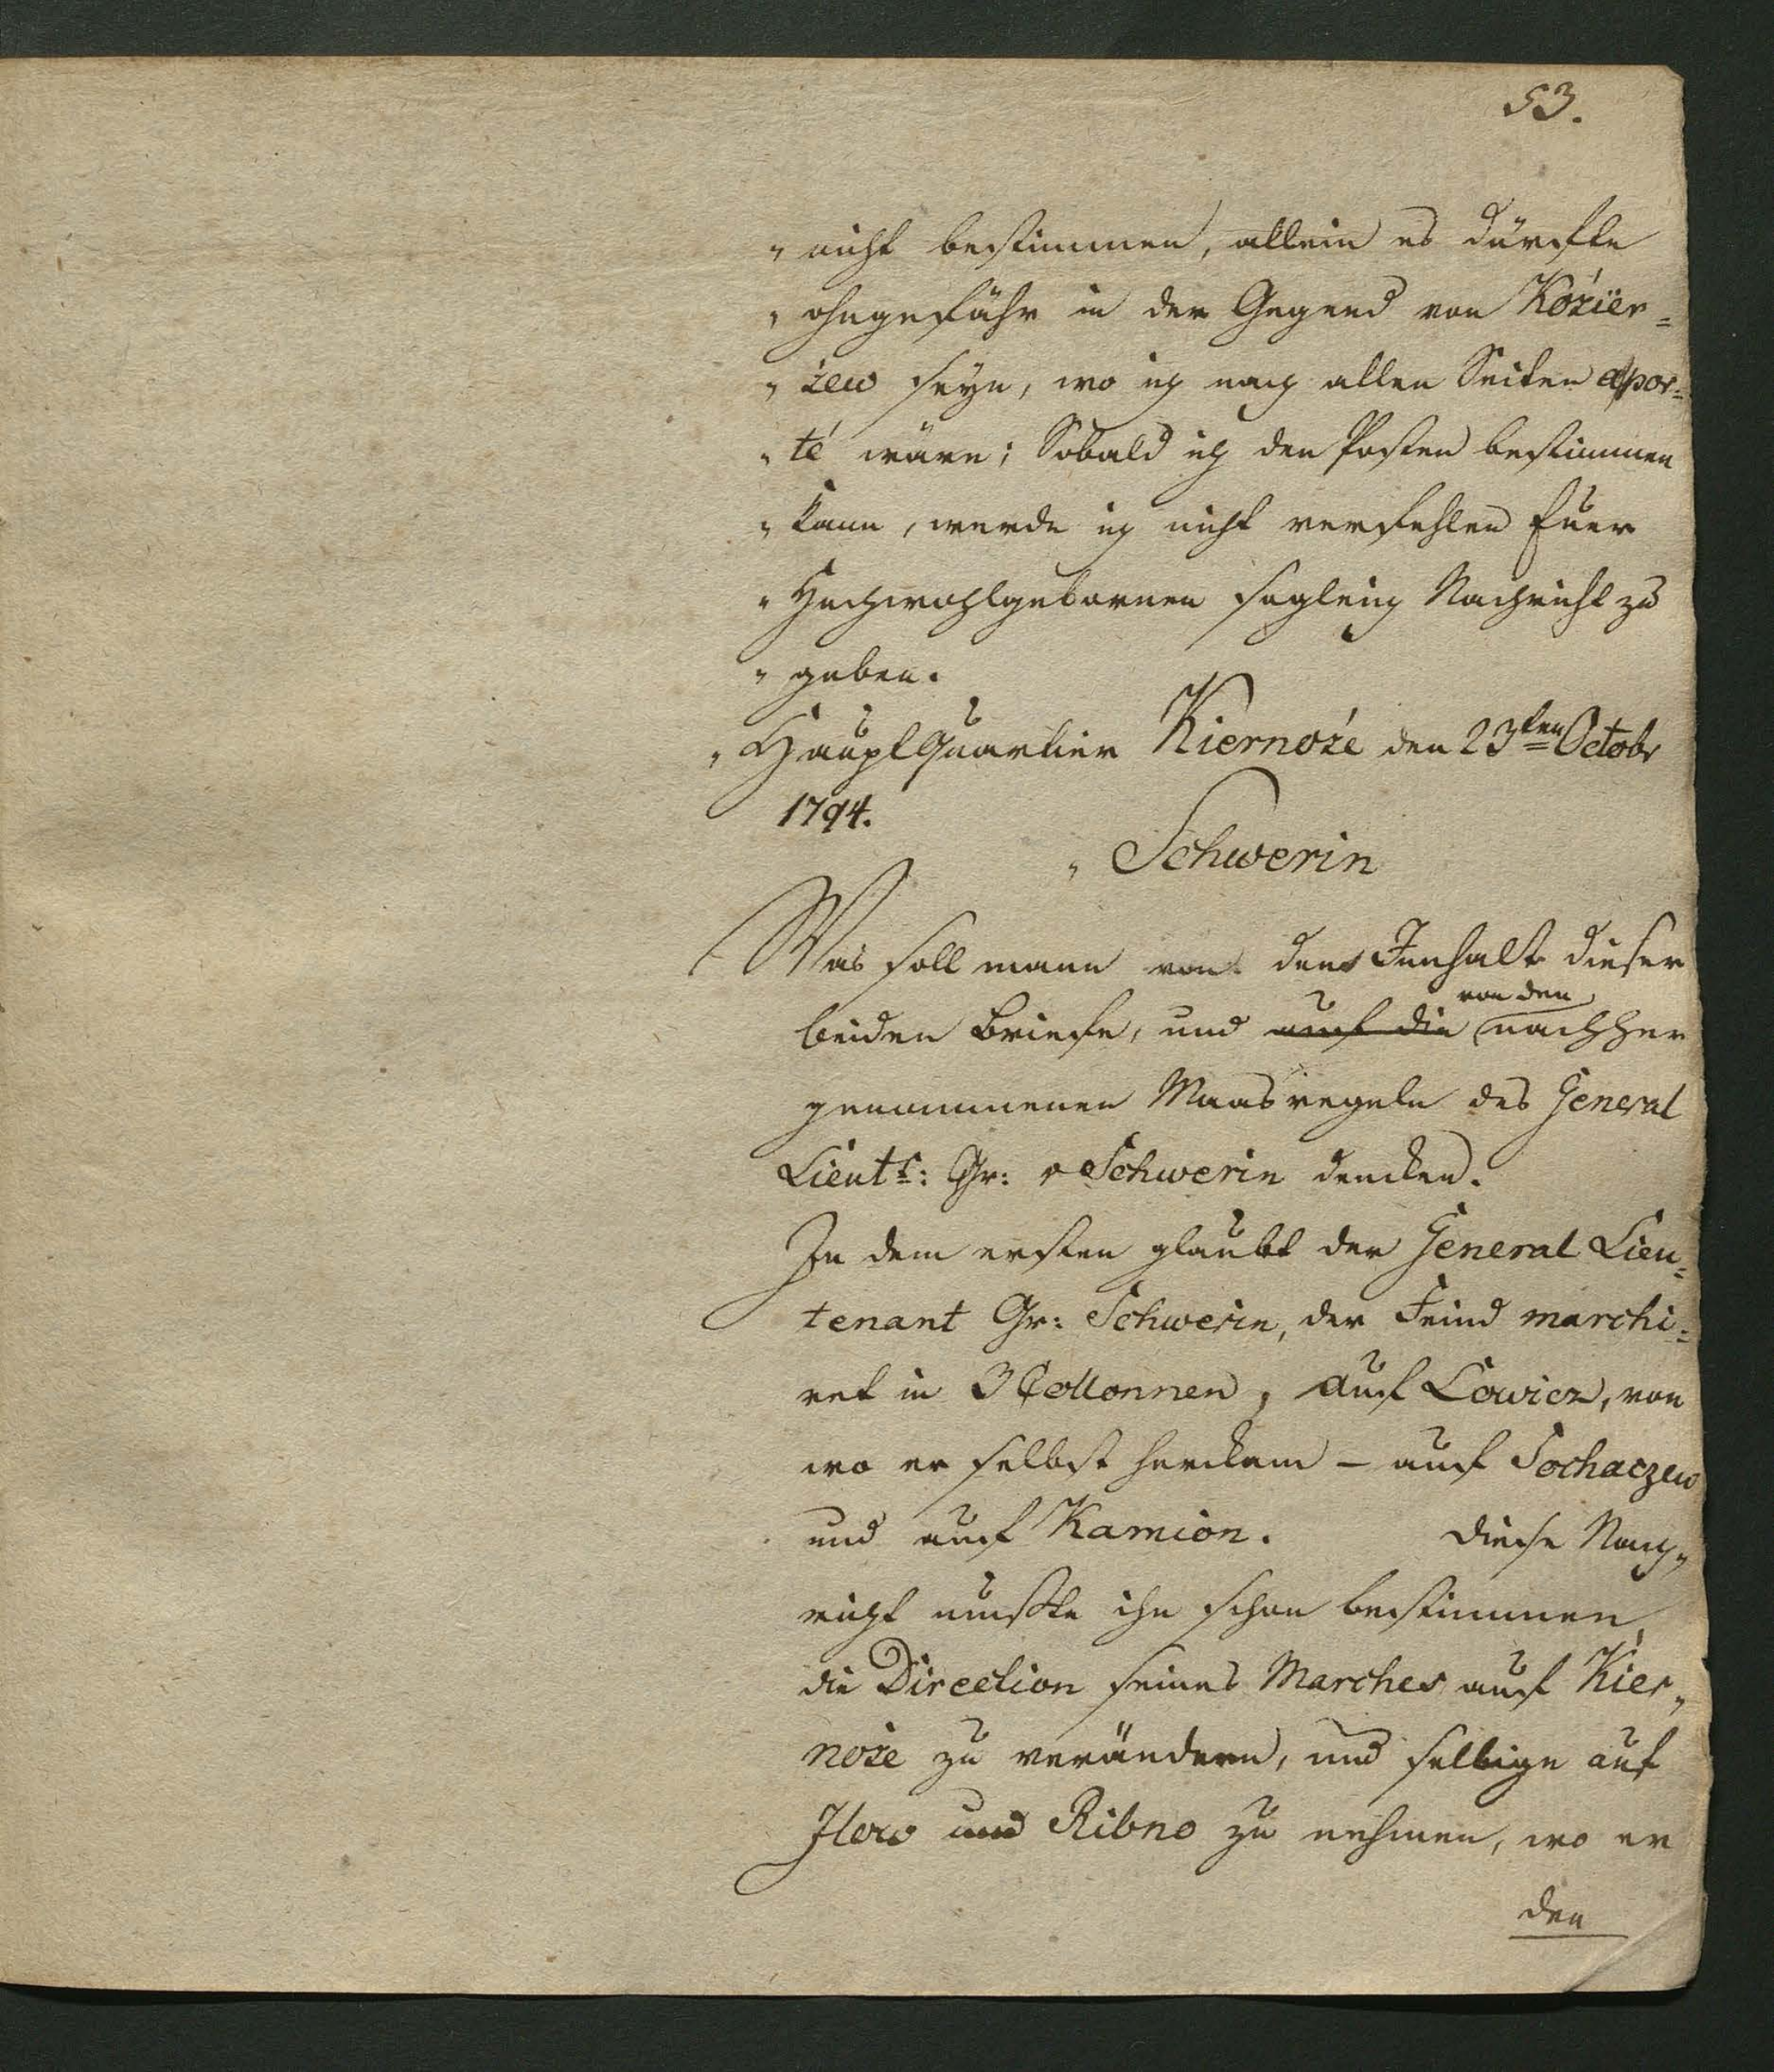 53.
„ nicht bestimmen, allein es dürfte
„ ohngefähr in der Gegend von Kózier=
„ zew seyn, wo ich nach allen Seiten apor=
„ té wäre; Sobald ich den Posten bestimmen
„ kann, werde ich nicht verfehlen Euer
„ Hochwohlgebornen sogleich Nachricht zu
„ geben.
„ HauptQuartier Kiernozé den 23ten Octobr
1794.
„ Schwerin
Was soll mann von den Innhalt dieser
von den
beiden Briefe, und auf die nachher
genommenen Maasregeln des General
Lieut: Gr: v Schwerin dencken.
In dem ersten glaubt der General Lieu=
tenant Gr: Schwerin, der Feind marchi=
ret in 3 Collonnen, auf Lowicz, von
wo er selbst herckam – auf Sochaczew
und auf Kamion. Diese Nach„
richt mußte ihn schon bestimmen,
die Direction seines Marches auf Kier„
noze zu verändern, und selbige auf
Ilow und Ribno zu nehmen, wo er
den